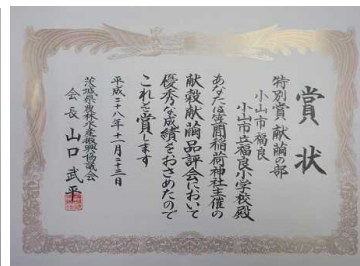 賞状
特別賞 献繭の部
小山市福良
小山市立福良小学校殿
あなたは笠間稲荷神社主催の
献穀献繭品評会において
優秀な成績をおさめたので
これを賞します
平成二十八年十一月二十三日
茨城県農林水産振興協議会
会長 山口武平